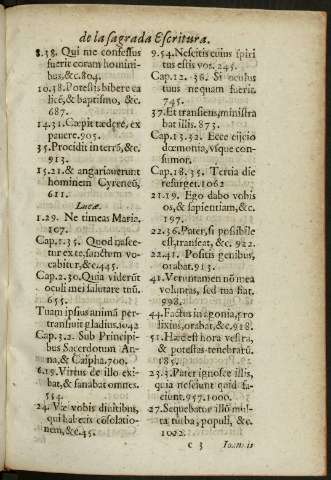 de la sagrada Escritura.
8.38. Qui me confessus
fuerit coram homini-
bus, &c. 804.
10.38. Potestis bibere ca
licē, & baptismo, &c.
687.
14.31. Cœpit tædere, ex
pauere. 905.
35. Procidit in terrā, &c.
913.
15.21. & angariauerunt
hominem Cyreneū,
611.
Lucæ.
1.29. Ne timeas Maria.
107.
Cap. 1.35. Quod nasce-
tur ex te, sanctum vo-
cabitur, &c. 445.
Cap. 2.30. Quia viderūt
oculi mei salutare tuū.
655.
Tuam ipsius animā per-
transiuit gladius. 1042
Cap. 3.2. Sub Principi-
bus Sacerdotum An-
na, & Caipha. 700.
6.19. Virtus de illo exi-
bat, & sanabat omnes.
554.
24. Væ vobis diuitibus,
qui habetis cōsolatio-
nem, &c. 45.
9.54. Nescitis cuius spiri
tus estis vos. 245.
Cap. 12. 38. Si oculus
tuus nequam fuerit.
745.
37. Et transiens, ministra
bat illis. 873.
Cap. 13.32. Ecce eijcio
dœmonia, vsque con-
sumor.
Cap. 18. 35. Tertia die
resurget. 1062
21.19. Ego dabo vobis
os, & sapientiam, &c.
197.
22.36. Pater, si possibile
est, transeat, &c. 922.
22.41. Positis genibus,
orabat. 913.
41. Veruntamen nō mea
voluntas, sed tua fiat.
998.
44. Factus in agonia, pro
lixius, orabat, &c. 918.
51. Hæc est hora vestra,
& potestas tenebrarū.
185.
23.3. Pater ignosce illis,
quia nesciunt quid fa-
ciunt. 957. 1000.
27. Sequebatur illū mul-
ta turba, populi, &c.
1002.
c 3
Ioan. is